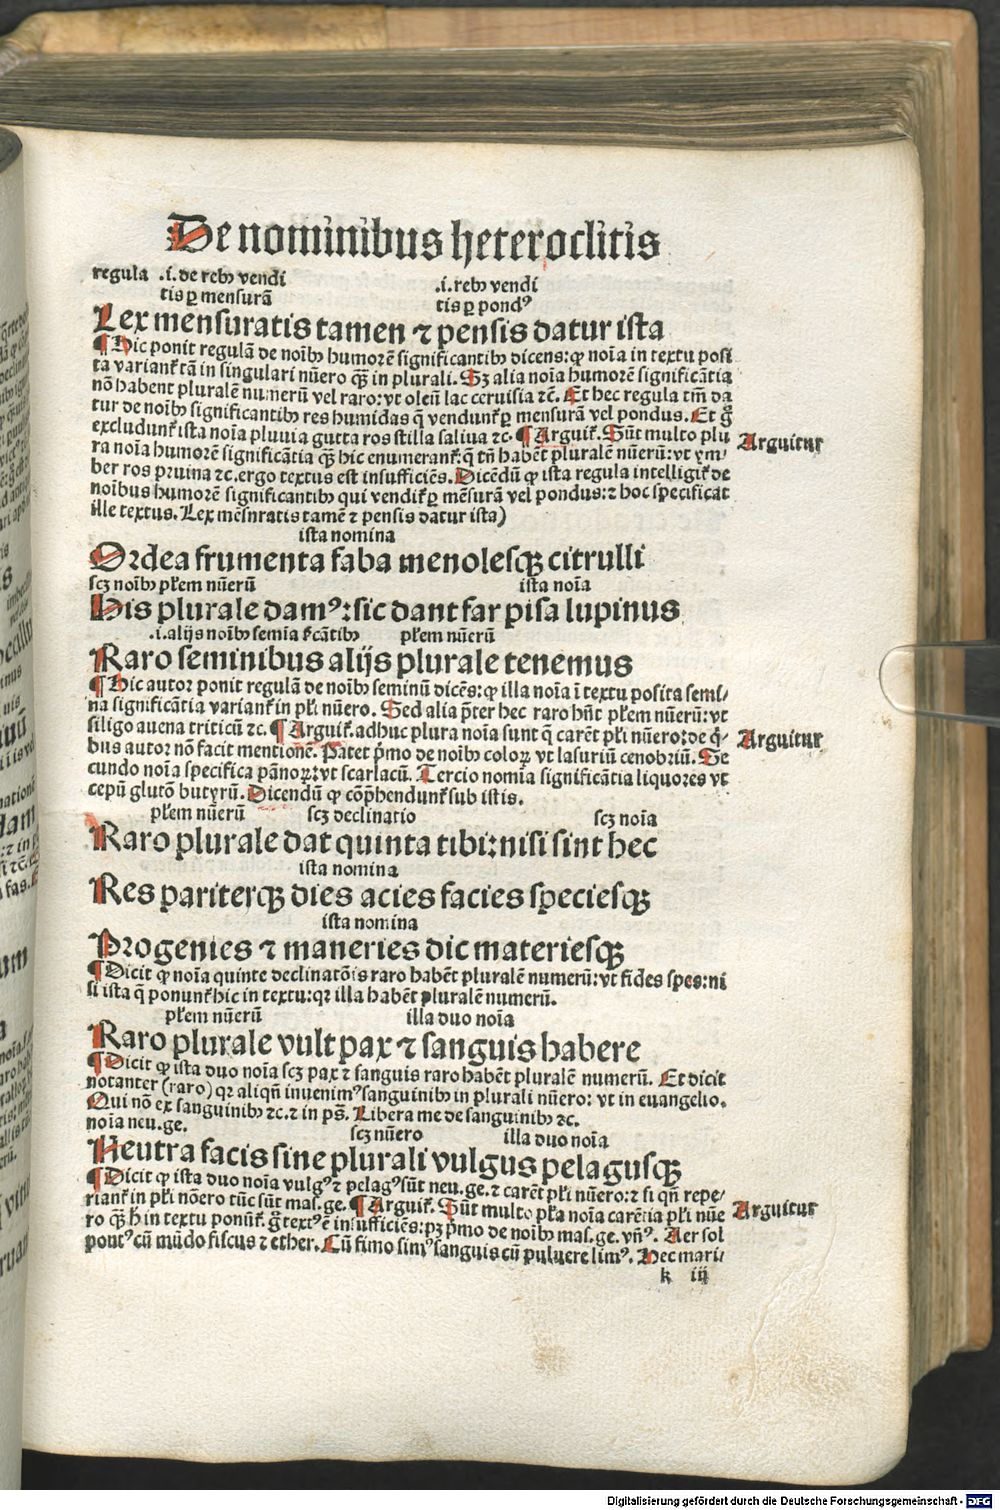 De nominibus heteroclitis
regula .i. de rebꝰ vendi .i. rebꝰ vendi
tis ꝑ mensurā tis ꝑ pondꝰ
Lex mensuratis tamen ⁊ pensis datur ista
¶ Hic ponit regulā de noībꝰ humorē significantibꝰ dicens: ꝙ noīa in textu posi
ta variant᷑ tā in singulari nūero qȝ̄ in plurali. Sȝ alia noīa humorē significātia
nō habent pluralē numerū vel raro: vt oleū lac ceruisia ⁊c̄. Et hec regula tm̄ da
tur de noībꝰ significantibꝰ res humidas q̄ vendunt᷑ ꝑ mensurā vel pondus. Et g̊
excludunt᷑ ista noīa pluuia gutta ros stilla saliua ⁊c. ¶ Arguit᷑. Sūt multo plu
Arguitur
ra noīa humorē significātia qȝ̄ hic enumerant᷑: q̄ tn̄ habēt pluralē nūerū: vt ym-
ber ros pruina ⁊c. ergo textus est insufficiēs. Dicēdū ꝙ ista regula intelligit᷑ de
noībus humorē significantibꝰ qui vendit᷑ ꝑ mēsurā vel pondus: ⁊ hoc specificat
ille textus. Lex mēsnratis tamē ⁊ pensis datur ista)
ista nomina
Ordea frumenta faba menolesqȝ citrulli
scȝ noībꝰ pl̄rem nūerū ista noīa
His plurale damꝰ: sic dant far pisa lupinus
.i. alijs noībꝰ semīa s͛cātibꝰ pl̄rem nūerū
Raro seminibus alijs plurale tenemus
¶ Hic autor ponit regulā de noībꝰ seminū dicēs: ꝙ illa noīa ī textu posita semi-
na significātia variant᷑ in pl̄i nūero. Sed alia p̄ter hec raro hn̄t pl̄rem nūerū: vt
siligo auena triticū ⁊c. ¶ Arguit᷑. adhuc plura noīa sunt q̄ carēt pl̄i nūero: de q̄-
Arguitur
bus autor nō facit mentionē. Patet pͥmo de noībꝰ coloꝝ vt lasuriū cenobriū. Se
cundo noīa specifica pānoꝝ: vt scarlacū. Tercio nomīa significātia liquores vt
cepū glutō butyrū. Dicendū ꝙ cōp̄hendunt᷑ sub istis.
pl̄rem nūerū scȝ declinatio scȝ noīa
Raro plurale dat quinta tibi: nisi sint hec
ista nomina
Res pariterqȝ dies acies facies speciesqȝ
ista nomina
Progenies ⁊ maneries dic materiesqȝ
¶ Dicit ꝙ noīa quinte declinatōis raro habēt pluralē numerū: vt fides spes: ni
si ista q̄ ponunt᷑ hic in textu: qꝛ illa habēt pluralē numerū.
pl̄rem nūerū illa duo noīa
Raro plurale vult pax ⁊ sanguis habere
¶ Dicit ꝙ ista duo noīa scȝ pax ⁊ sanguis raro habēt pluralē numerū. Et dicit
notanter (raro) qꝛ aliqn̄ inuenimꝰ sanguinibꝰ in plurali nūero: vt in euangelio.
Qui nō ex sanguinibꝰ ⁊c. ⁊ in ps̄. Libera me de sanguinibꝰ ⁊c.
noīa neu. ge. scȝ nūero illa duo noīa
Neutra facis sine plurali vulgus pelagusqȝ
¶ Dicit ꝙ ista duo noīa vulgꝰ ⁊ pelagꝰ sūt neu. ge. ⁊ carēt pl̄i nūero: ⁊ si qn̄ repe-
riant᷑ in pl̄i nōero tūc sūt mas. ge. ¶ Arguit᷑. Sūt multo pl̄a noīa carētia pl̄i nūe
Arguitur
ro qȝ̄ h̄ in textu ponūt᷑. g̊ textꝰ ē insufficiēs: pȝ pͥmo de noībꝰ mas. ge. vn̄ꝰ. Aer sol
pontꝰ cū mūdo fiscus ⁊ ether. Cū fimo simꝰ sanguis cū puluere limꝰ. Hec mari-
k iij
Digitalisierung gefördert durch die Deutsche Forschungsgemeinschaft - DFG